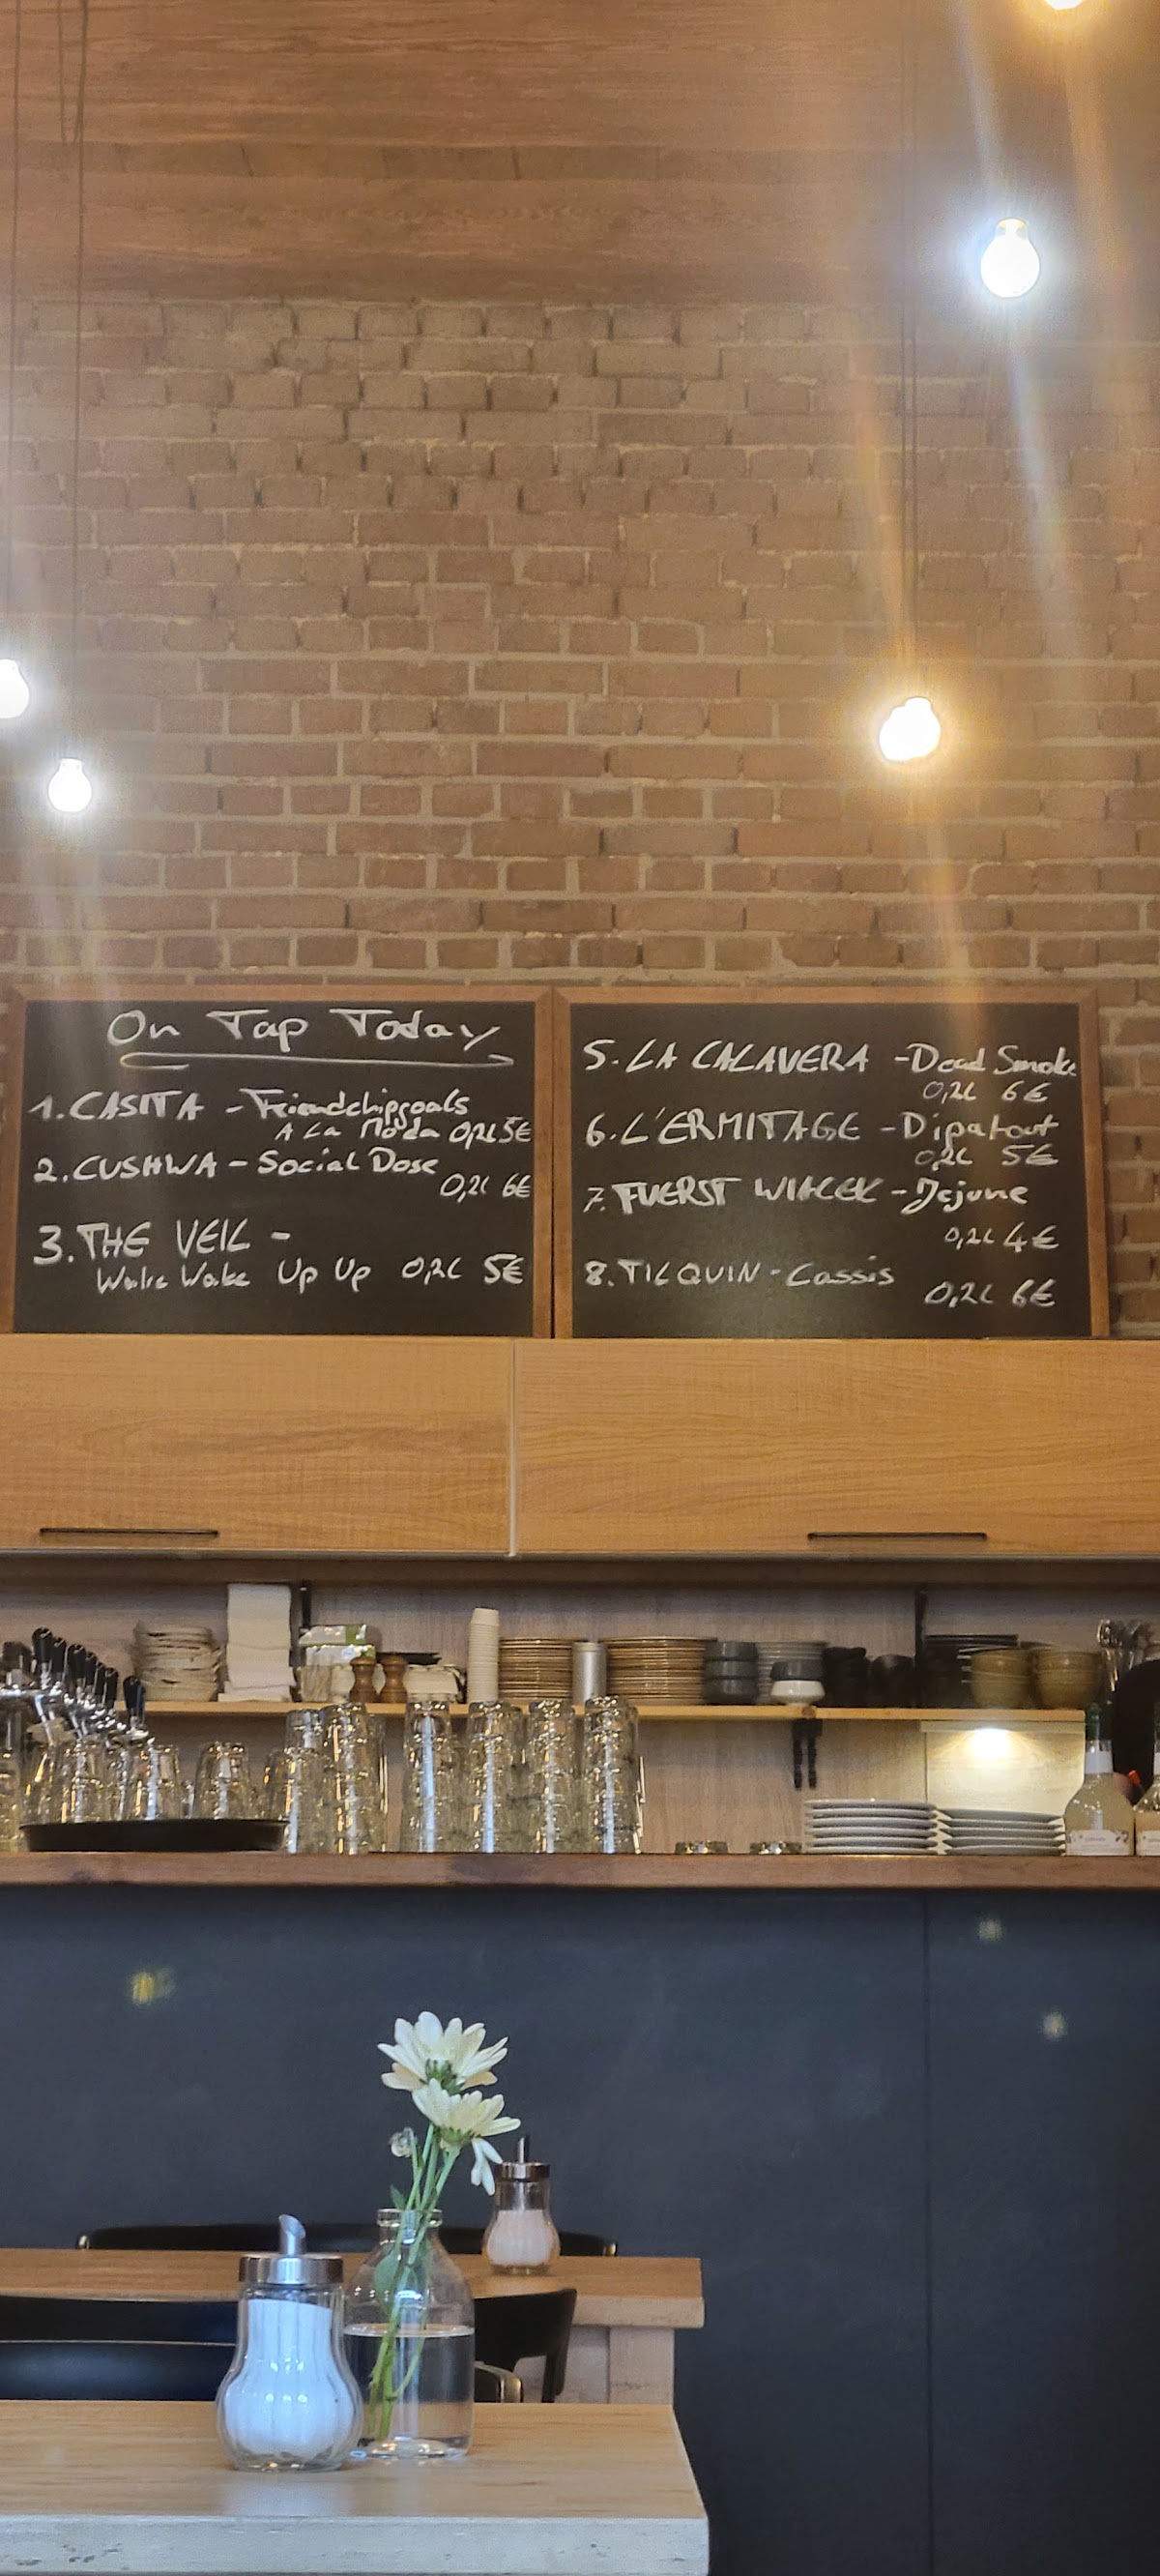 On Tap Today
1. CASITA - Friendchipgoals
A La Moda 0,2L 5€
2. CUSHWA - Social Dose
0,2L 6€
3. THE VEIL -
Wake Wake Up Up 0,2L 5€
5. LA CALAVERA - Dead Smoke
0,2L 6€
6. L'ERMITAGE -
0,2L 5€
7. FUERST WIACEK - Jejune
0,2L 4€
8. TILQUIN - Cassis
0,2L 6€